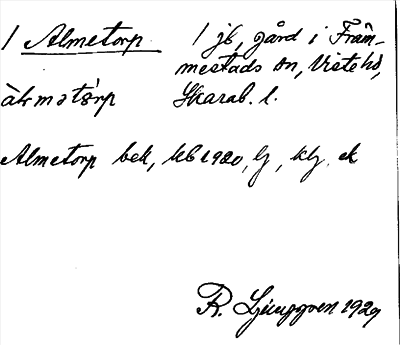 1 Almetorp 1 jb, gård i Främ-
mestads sn, Viste hd,
Skarab. l.
Almetorp bek, kb 1920, lj, klj, ek
R. Ljunggren 1929